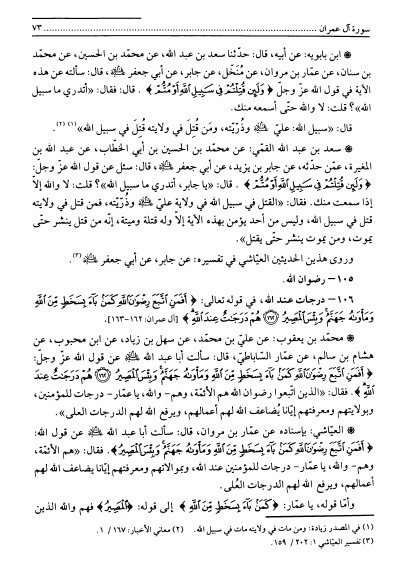 سورة آل عمران ........ ٧٣
* ابن بابويه: عن أبيه، قال: حدّثنا سعد بن عبد الله، عن محمد بن الحسين، عن محمد
بن سنان، عن عمّار بن مروان، عن مُنخّل، عن جابر، عن أبي جعفر ﷺ، قال: سألته عن هذه
الآية في قول الله عزّ وجلّ ﴿ وَلَئِن قُتِلْتُمْ فِي سَبِيلِ اللَّهِ أَوْ مُتُّمْ ﴾. قال: فقال: «أتدري ما سبيل
الله»؟ قلت: لا والله حتّى أسمعه منك.
قال: «سبيل الله: عليّ ﷺ وذُرّيّته، ومَن قُتِلَ في ولايته قُتِلَ في سبيل الله»(١) (٢).
* سعد بن عبد الله القمي: عن محمد بن الحسين بن أبي الخطّاب، عن عبد الله بن
المغيرة، عمّن حدّثه، عن جابر بن يزيد، عن أبي جعفر ﷺ، قال: سئل عن قول الله عزّ وجلّ:
﴿ وَلَئِن قُتِلْتُمْ فِي سَبِيلِ اللَّهِ أَوْ مُتُّمْ ﴾. قال: «يا جابر، أتدري ما سبيل الله»؟ قلت: لا والله إلاّ
إذا سمعت منك. فقال: «القتل في سبيل الله في ولاية عليّ ﷺ وذُرّيّته، فمن قتل في ولايته
قتل في سبيل الله، وليس من أحد يؤمن بهذه الآية إلاّ وله قتلة وميتة، إنّه من قتل ينشر حتّى
يموت، ومن يموت ينشر حتّى يقتل».
وروى هذين الحديثين العيّاشي في تفسيره: عن جابر، عن أبي جعفر ﷺ(٣).
١٠٥- رضوان الله.
١٠٦- درجات عند الله، في قوله تعالى: ﴿ أَفَمَنِ اتَّبَعَ رِضْوَانَ اللَّهِ كَمَن بَاءَ بِسَخَطٍ مِّنَ اللَّهِ
وَمَأْوَاهُ جَهَنَّمُ وَبِئْسَ الْمَصِيرُ ﴿١٦٢﴾ هُمْ دَرَجَاتٌ عِندَ اللَّهِ ﴾ [آل عمران: ١٦٢-١٦٣].
* محمّد بن يعقوب: عن عليّ بن محمد، عن سهل بن زياد، عن ابن محبوب، عن
هشام بن سالم، عن عمّار السّاباطي، قال: سألت أبا عبد الله ﷺ عن قول الله عزّ وجلّ:
﴿ أَفَمَنِ اتَّبَعَ رِضْوَانَ اللَّهِ كَمَن بَاءَ بِسَخَطٍ مِّنَ اللَّهِ وَمَأْوَاهُ جَهَنَّمُ وَبِئْسَ الْمَصِيرُ ﴿١٦٢﴾ هُمْ دَرَجَاتٌ عِندَ
اللَّهِ ﴾. فقال: «الذين اتّبعوا رضوان الله هم الأئمّة، وهم- والله، يا عمّار- درجات للمؤمنين،
وبولايتهم ومعرفتهم إيّانا يُضاعف الله لهم أعمالهم، ويرفع الله لهم الدرجات العلى».
* العيّاشي: بإسناده عن عمّار بن مروان، قال: سألت أبا عبد الله ﷺ عن قول الله:
﴿ أَفَمَنِ اتَّبَعَ رِضْوَانَ اللَّهِ كَمَن بَاءَ بِسَخَطٍ مِّنَ اللَّهِ وَمَأْوَاهُ جَهَنَّمُ وَبِئْسَ الْمَصِيرُ ﴾. فقال: «هم الأئمّة،
وهم- والله، يا عمّار- درجات للمؤمنين عند الله، وبموالاتهم ومعرفتهم إيانا يضاعف الله لهم
أعمالهم، ويرفع الله لهم الدرجات العُلى.
وأمّا قوله، يا عمار: ﴿ كَمَن بَاءَ بِسَخَطٍ مِّنَ اللَّهِ ﴾ إلى قوله: ﴿ الْمَصِيرُ ﴾ فهم والله الذين
(١) في المصدر زيادة: ومن مات في ولايته مات في سبيل الله. (٢) معاني الأخبار: ١٦٧ / ١.
(٣) تفسير العيّاشي ١: ٢٠٢ / ١٥٩.